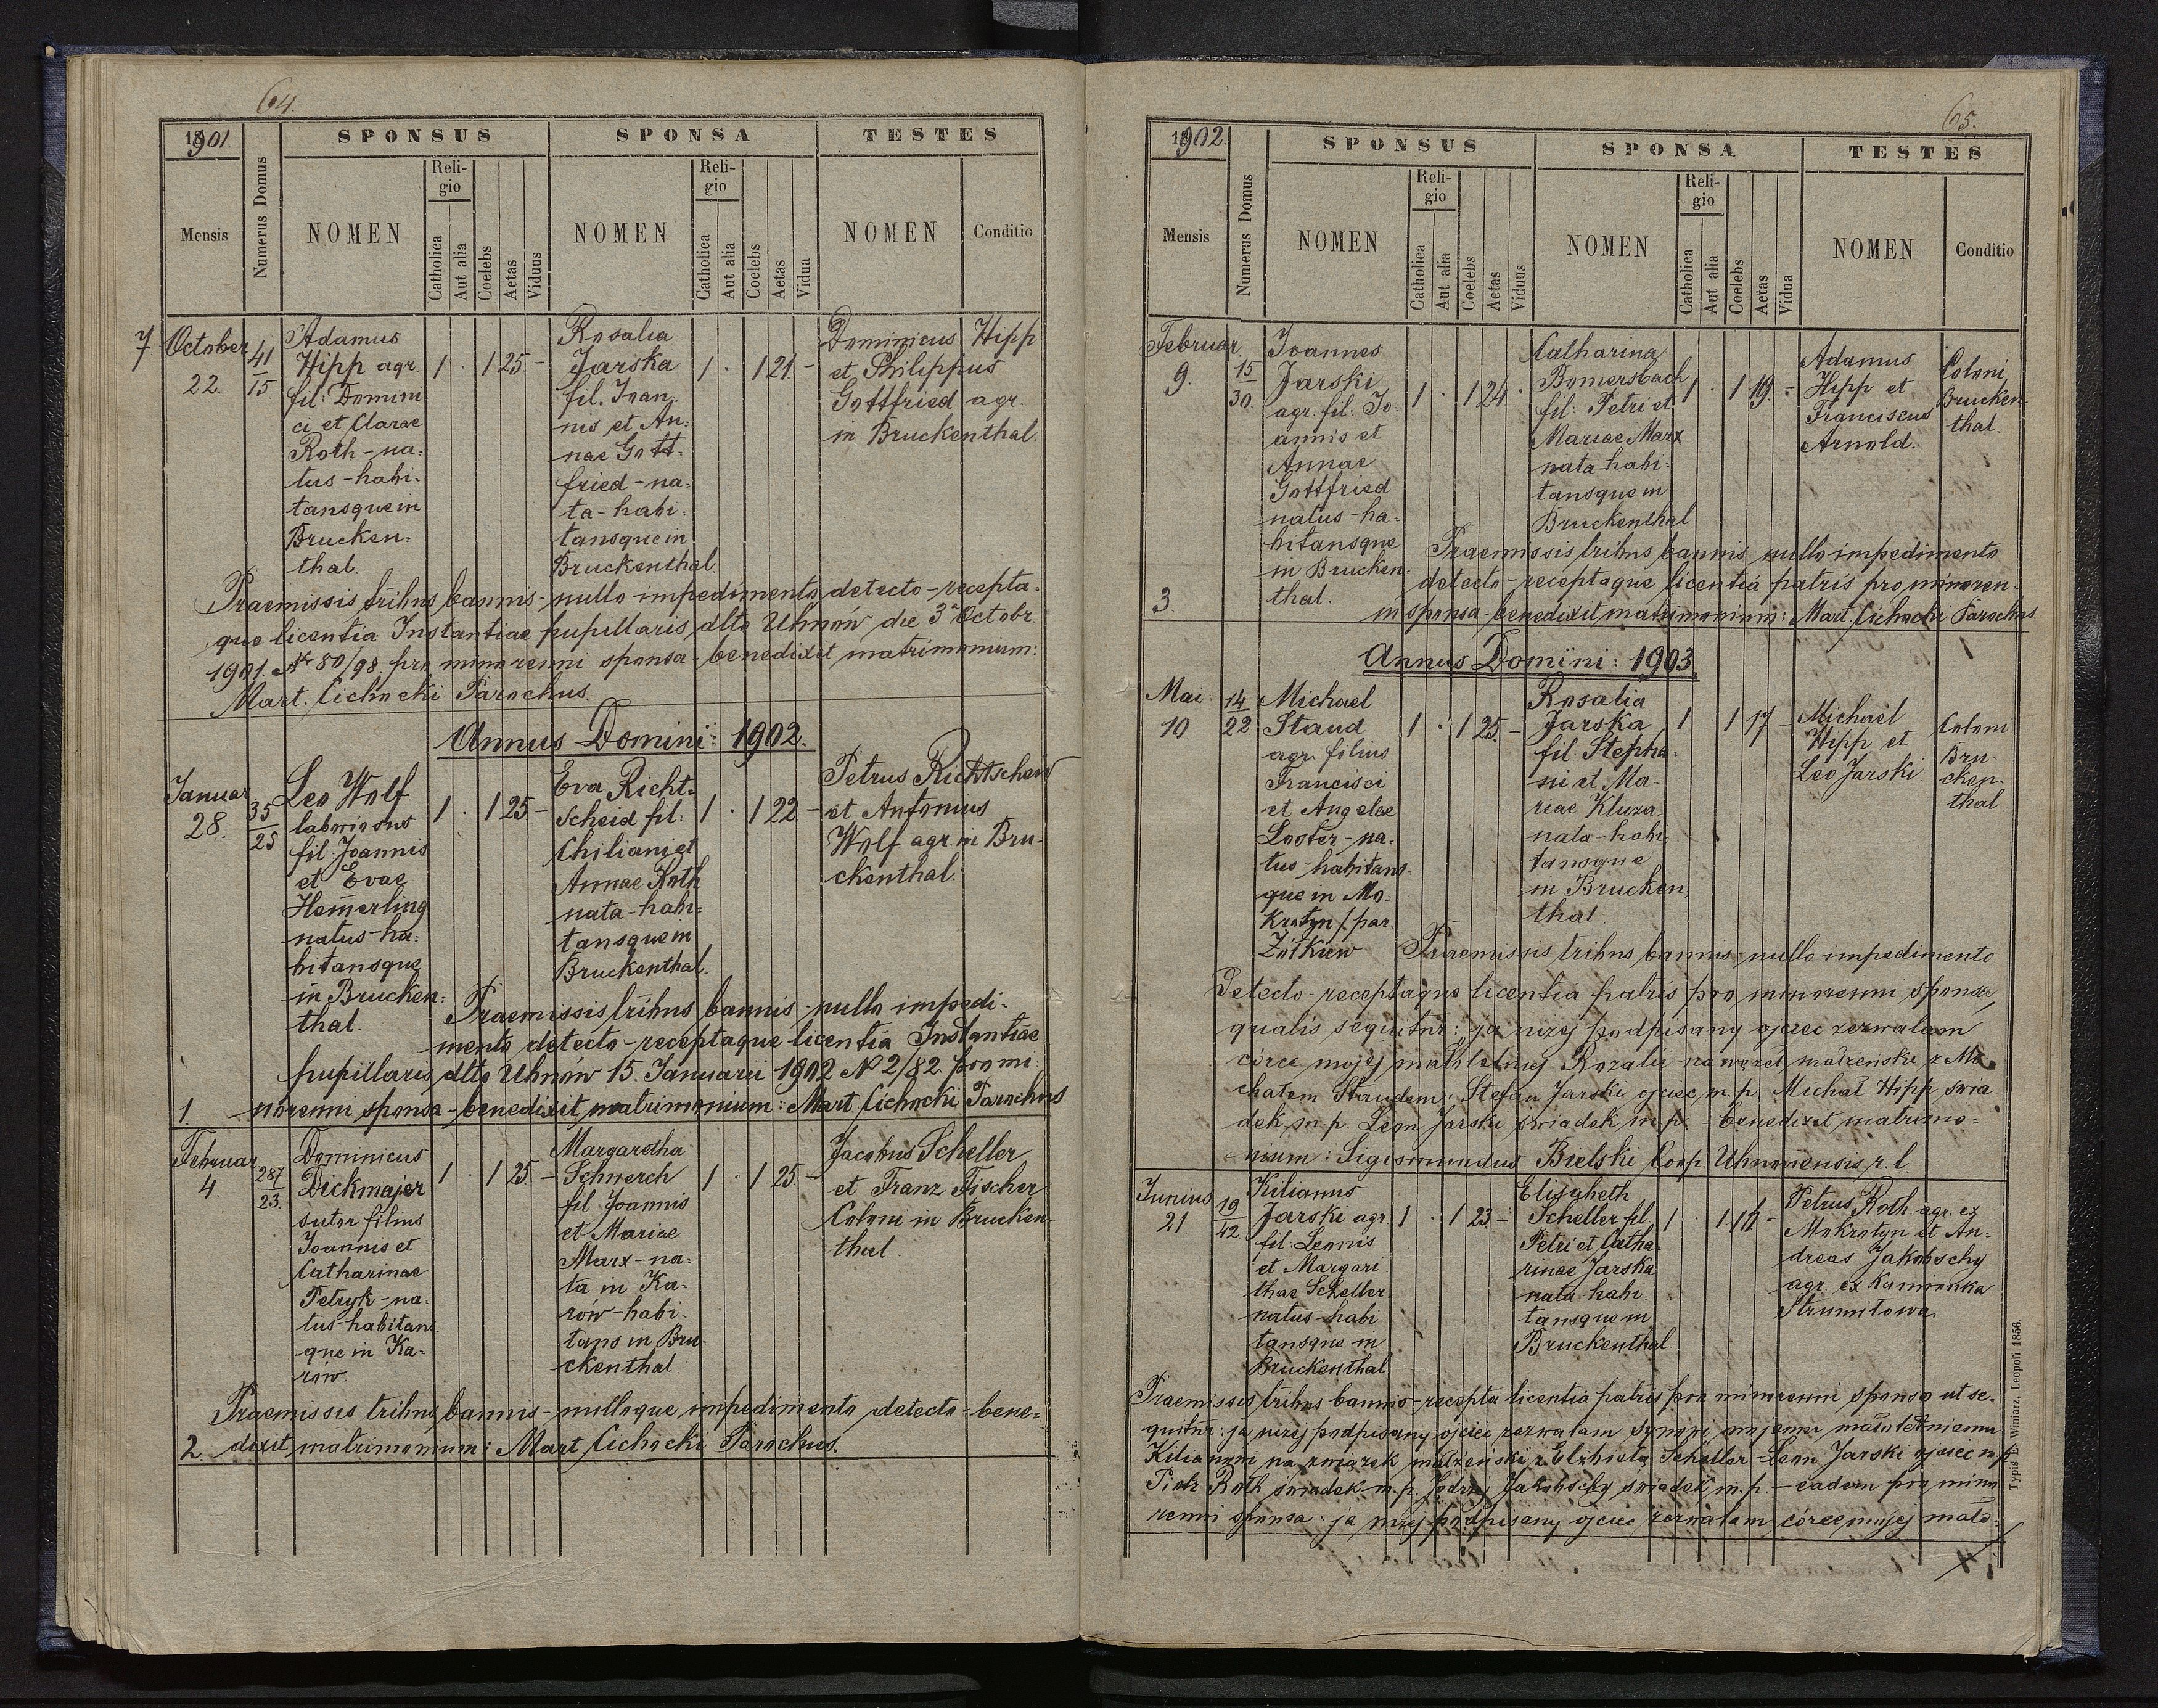 64.
1901
SPONSUS
SPONSA
TESTES
Mensis
Numerus Domus
NOMEN
Reli-
gio
Catholica
Aut alia
Coelebs
Aetas
Viduus
NOMEN
Reli-
gio
Catholica
Aut alia
Coelebs
Aetas
Vidua
NOMEN
Conditio
7 October
22.
41
15
Adamus
Hipp agr.
fil: Domini
ci et Clarae
Roth-na-
tus-habi-
tansque in
Brucken-
thal.
1 . 1 25 -
Rosalia
Jarska
fil. Joan-
nis et An-
nae Gott-
fried-na-
ta-habi-
tansque in
Bruckenthal.
1 . 1 21 -
Dominicus Hipp
et Philippus
Gottfried agr.
in Bruckenthal.
Praemissis tribus bannis-nullo impedimento detecto-recepta-
que licentia Instantiae pupillaris dtto Uhnów die 3 Octobr.
1901. Nr 80/98 pro minorenni sponsa-benedixit matrimonium:
Mart. Cichocki Parochus.
Annus Domini: 1902.
Januar
28.
35
25
Leo Wolf
laboriosus
fil. Joannis
et Evae
Hemerling
natus-ha-
bitansque
in Brucken-
thal.
1 . 1 25 -
Eva Richt-
scheid fil:
Chiliani et
Annae Roth
nata-habi-
tansque in
Bruckenthal.
1 . 1 22 -
Petrus Richtscheid
et Antonius
Wolf agr. in Bru-
ckenthal.
Praemissis tribus bannis-nullo impedi-
mento detecto-receptaque licentia Instantiae
pupillaris dtto Uhnów 15. Januarii 1902 N 2/82. pro mi-
1. norenni sponsa-benedixit matrimonium: Mart Cichocki Parochus
Februar
4.
287
23.
Dominicus
Dickmajer
sutor filius
Joannis et
Catharinae
Petryk-na-
tus-habitans
que in Ka-
rów
1 . 1 25. -
Margaretha
Schwerch
fil Joannis
et Mariae
Marx-na-
ta in Ka-
rów-habi-
tans in Bru-
ckenthal.
1 . 1 25. -
Jacobus Scheller
et Franz Fischer
Coloni in Brucken-
thal.
Praemissis tribus bannis-nulloque impedimento detecto-bene-
2. dixit matrimonium: Mart Cichocki Parochus.
65.
1902.
SPONSUS
SPONSA
TESTES
Mensis
Numerus Domus
NOMEN
Reli-
gio
Catholica
Aut alia
Coelebs
Aetas
Viduus
NOMEN
Reli-
gio
Catholica
Aut alia
Coelebs
Aetas
Vidua
NOMEN
Conditio
Februar.
9.
15
30.
Joannes
Jarski
agr. fil: Jo-
annis et
Annae
Gottfried
natus-ha-
bitansque
in Brucken-
thal.
1 . 1 24 .
Catharina
Bomersbach
fil: Petri et
Mariae Marx
nata-habi-
tansque in
Bruckenthal
1 . 1 19. -
Adamus
Hipp et
Franciscus
Arnold.
Coloni
Brucken-
thal.
Praemissis tribus bannis-nullo impedimento
detecto-receptaque licentia patris pro minoren-
3 ni sponsa-benedixit matrimonium: Mart. Cichocki Parochus.
Annus Domini: 1903.
Mai
10
14
22
Michael
Staud
agr. filius
Francisci
et Angelae
Loster-na-
tus-habitans-
que in Mo-
krotyn/: par.
Żółkiew
1 . 1 25. -
Rosalia
Jarska
fil. Stepha-
ni et Ma-
riae Kluza
nata-habi-
tansque
in Brucken-
thal.
1 . 1 17 -
Michael
Hipp et
Leo Jarski
Coloni
Bru-
cken-
thal
Praemissis tribus bannis-nullo impedimento
detecto-receptaque licentia patris pro minorenni sponsa,
qualis sequitur: ja niżej podpisany ojciec zezwalam
córce mojej małoletniej Rozalii na związek małżeński z Mi-
chałem Staudem: Stefan Jarski ojciec m.p. Michał Hipp świa
dek m p. Leon Jarski świadek m.p. - benedixit matrimo-
nium: Sigismundus Bielski Coop. Uhnoviensis r. l.
Junius
21
19
42
Kilianus
Jarski agr.
fil. Leonis
et Margari-
thae Scheller
natus-habi-
tansque in
Bruckenthal
1 . 1 23 -
Elisabeth
Scheller fil.
Petri et Catha-
rinae Jarska
nata-habi-
tansque in
Bruckenthal
Petrus Roth agr. ex
Mokrotyn et An-
dreas Jakobschy
agr. ex Kamionka
Strumiłowa
Praemissis tribus bannis-recepta licentia patris pro minorenni sponso ut se-
quitur: ja niżej podpisany ojciec zezwalam synowi mojemu małoletniemu
Kilianowi na związek małżeński z Elżbietą Scheller-Leon Jarski ojciec m.p.
Piotr Roth świadek m.p. Jędrzej Jakobschy świadek m.p. - eadem pro mino
renni sponsa: ja niżej podpisany ojciec zezwalam córce mojej mało-
Typis E. Winiarz. Leopoli 1856.